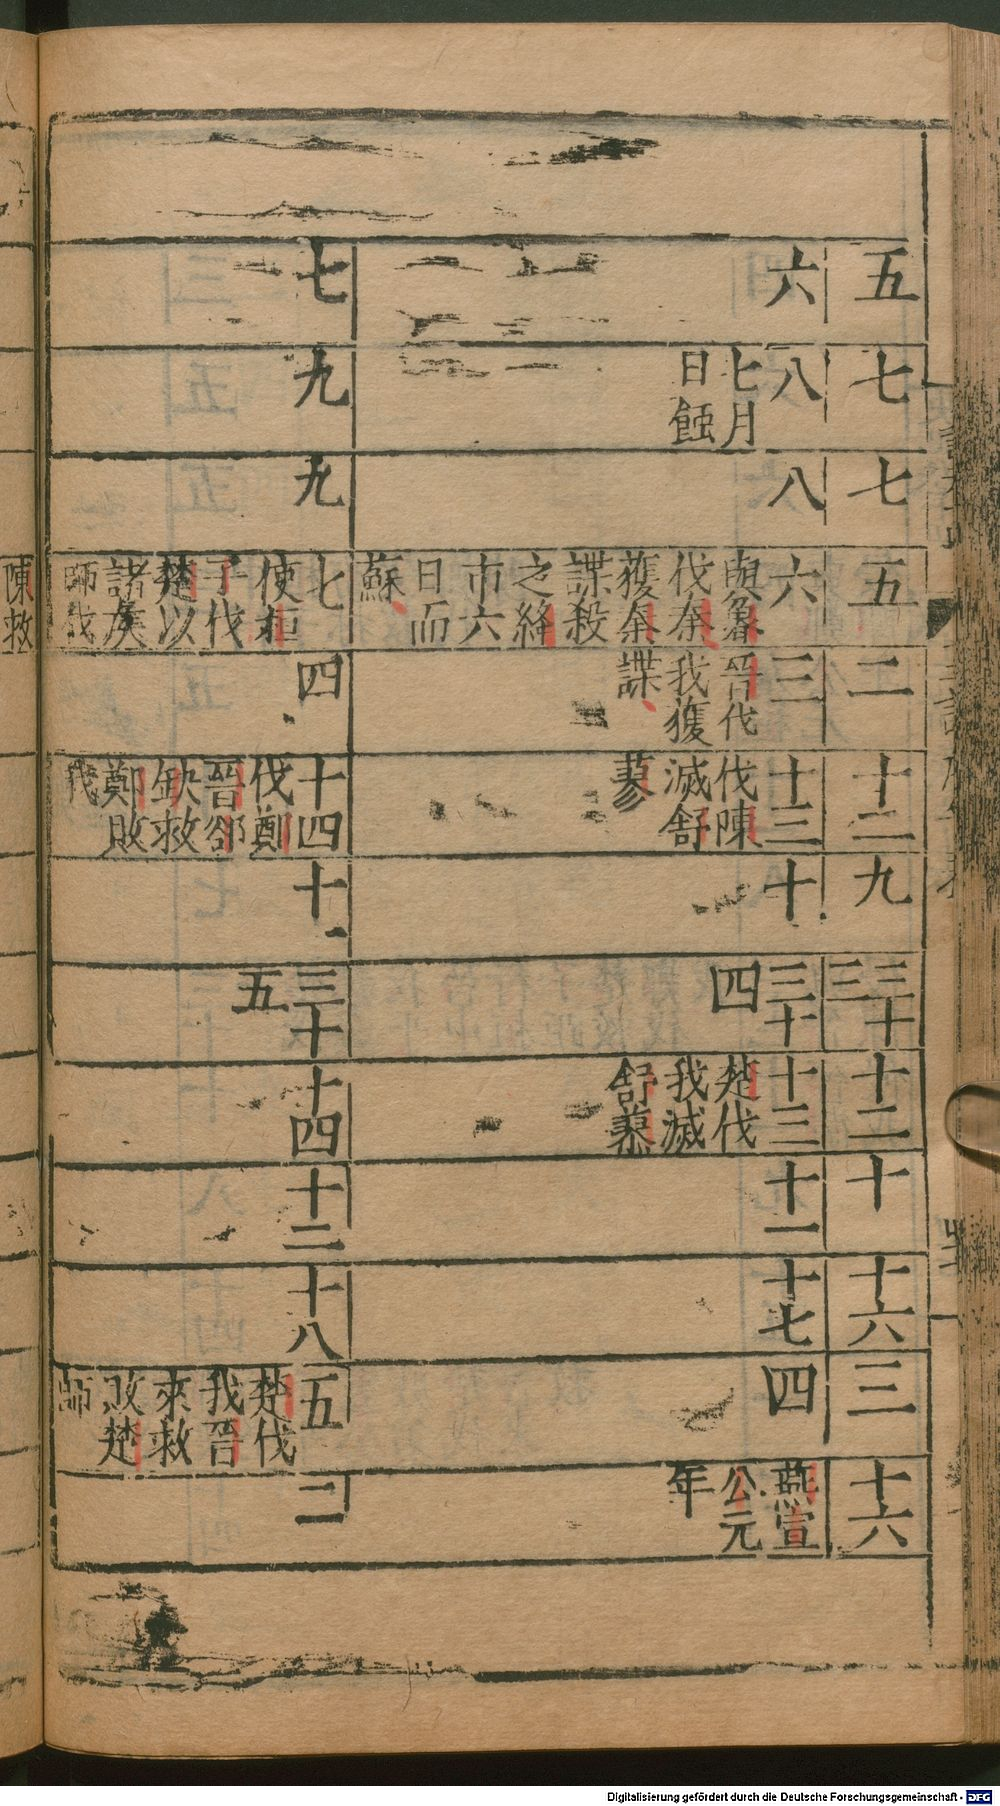 五
七
七
五
二
十二
九
三十
三
十二
十
十六
三
十六
六
八
七月
日蝕
八
六
與魯
伐秦
獲秦
諜殺
之絳
市六
日而
蘇
三
晉伐
我獲
諜
十三
伐陳
滅舒
蓼
十
三十
四
十三
楚伐
我滅
舒蓼
十一
十七
四
燕宣
公元
年
七
九
九
七
使桓
子伐
楚以
諸侯
師伐
陳救
四
十四
伐鄭
晉郤
缺救
鄭敗
我
十一
三十
五
十四
十二
十八
五
楚伐
我晉
來救
敗楚
師
二
Digitalisierung gefördert durch die Deutsche Forschungsgemeinschaft - DFG